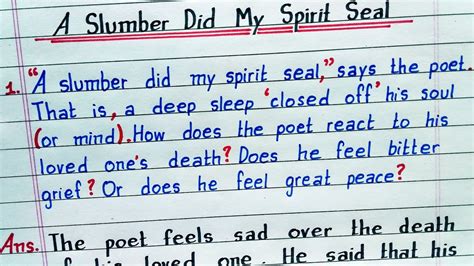 A Slumber Did My Spirit Seal
1. "A slumber did my spirit seal," says the poet.
That is, a deep sleep 'closed off' his soul
(or mind). How does the poet react to his
loved one's death? Does he feel bitter
grief? Or does he feel great peace?
Ans. The poet feels sad over the death
of his loved one. He said that his